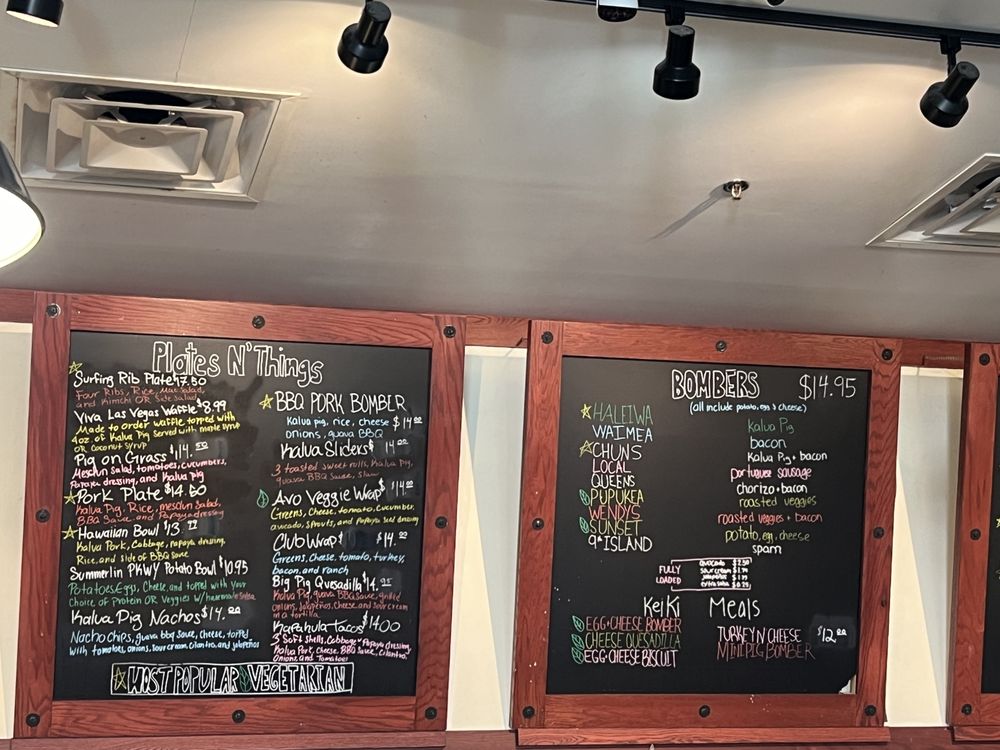 Plates N' Things
Surfing Rib Plate 17.50
Four Ribs, Rice, Mac Salad,
and Kimchi OR Side Salad
Viva Las Vegas Waffle $8.99
Made to order waffle topped with
4oz. of Kalua Pig Served with maple syrup
OR coconut syrup
Pig on Grass $14.50
Mesclun Salad, tomatoes, cucumbers,
Papaya dressing, and Kalua pig
Pork Plate $14.50
Kalua Pig, Rice, mesclun Salad,
BBQ Sauce, and Papaya dressing
Hawaiian Bowl $13.
Kalua Pork, Cabbage, papaya dressing,
Rice, and side of BBQ Sauce
Summerlin PKWY Potato Bowl $10.95
Potatoes, Eggs, Cheese, and topped with your
Choice of Protein OR Veggies w/ Salsa
Kalua Pig Nachos $14.00
Nacho chips, guava bbq sauce, cheese, topped
with tomatoes, onions, sour cream, cilantro, and jalapeños
BBQ PORK BOMBER
Kalua pig, rice, cheese $14.00
onions, guava BBQ
Kalua Sliders $14.00
3 toasted sweet rolls, Kalua pig,
guava BBQ Sauce, slaw
Avo Veggie Wrap $14.00
Greens, Cheese, tomato, Cucumber,
avocado, Sprouts, and Papaya seed dressing
Club Wrap $14.00
Greens, Cheese, tomato, turkey,
bacon, and ranch
Big Pig Quesadilla $14.25
Kalua Pig, guava BBQ Sauce, grilled
onions, jalapeños, Cheese, and sour cream
in a tortilla
Kapahulu Tacos $14.00
3 Soft Shells, Cabbage, Papaya dressing,
Kalua Pork, Cheese, BBQ Sauce, Cilantro,
Onions, and Tomatoes
MOST POPULAR VEGETARIAN
BOMBERS $14.95
(all include potato, egg & cheese)
HALEIWA Kalua Pig
WAIMEA bacon
CHUNS Kalua Pig + bacon
LOCAL portuguese sausage
QUEENS chorizo + bacon
PUPUKEA roasted veggies
WENDYS roasted veggies + bacon
SUNSET potato, egg, cheese
9th ISLAND spam
FULLY LOADED
avocado $2.50
sour cream
jalapeños
extra salsa
Keiki Meals
EGG + CHEESE BOMBER
CHEESE QUESADILLA
EGG + CHEESE BISCUIT
TURKEY N CHEESE $12.00
MINI PIG BOMBER